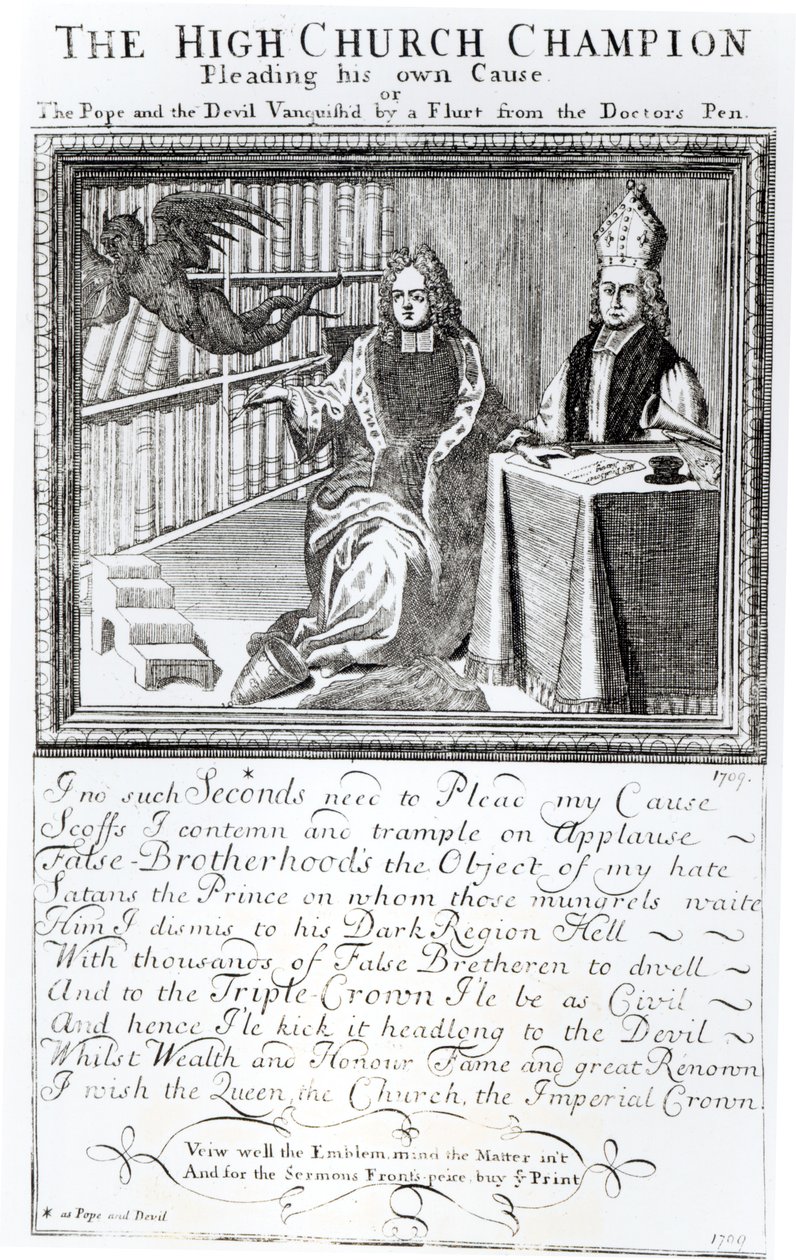 THE HIGH CHURCH CHAMPION
Pleading his own Cause.
or
The Pope and the Devil Vanquish'd by a Flurt from the Doctors Pen.
1709.
I no such Seconds* need to Plead my Cause
Scoffs I contemn and trample on Applause ~
False-Brotherhood's the Object of my hate
Satans the Prince on whom those mungrels waite
Him I dismis to his Dark Region Hell ~ ~
With thousands of False Bretheren to dwell ~
And to the Triple-Crown I'le be as Civil ~
And hence I'le kick it headlong to the Devil ~
Whilst Wealth and Honour Fame and great Renown
I wish the Queen, the Church, the Imperial Crown.
Veiw well the Emblem, mind the Matter in't
And for the Sermons Fronts-peice, buy ye Print
* as Pope and Devil
1709